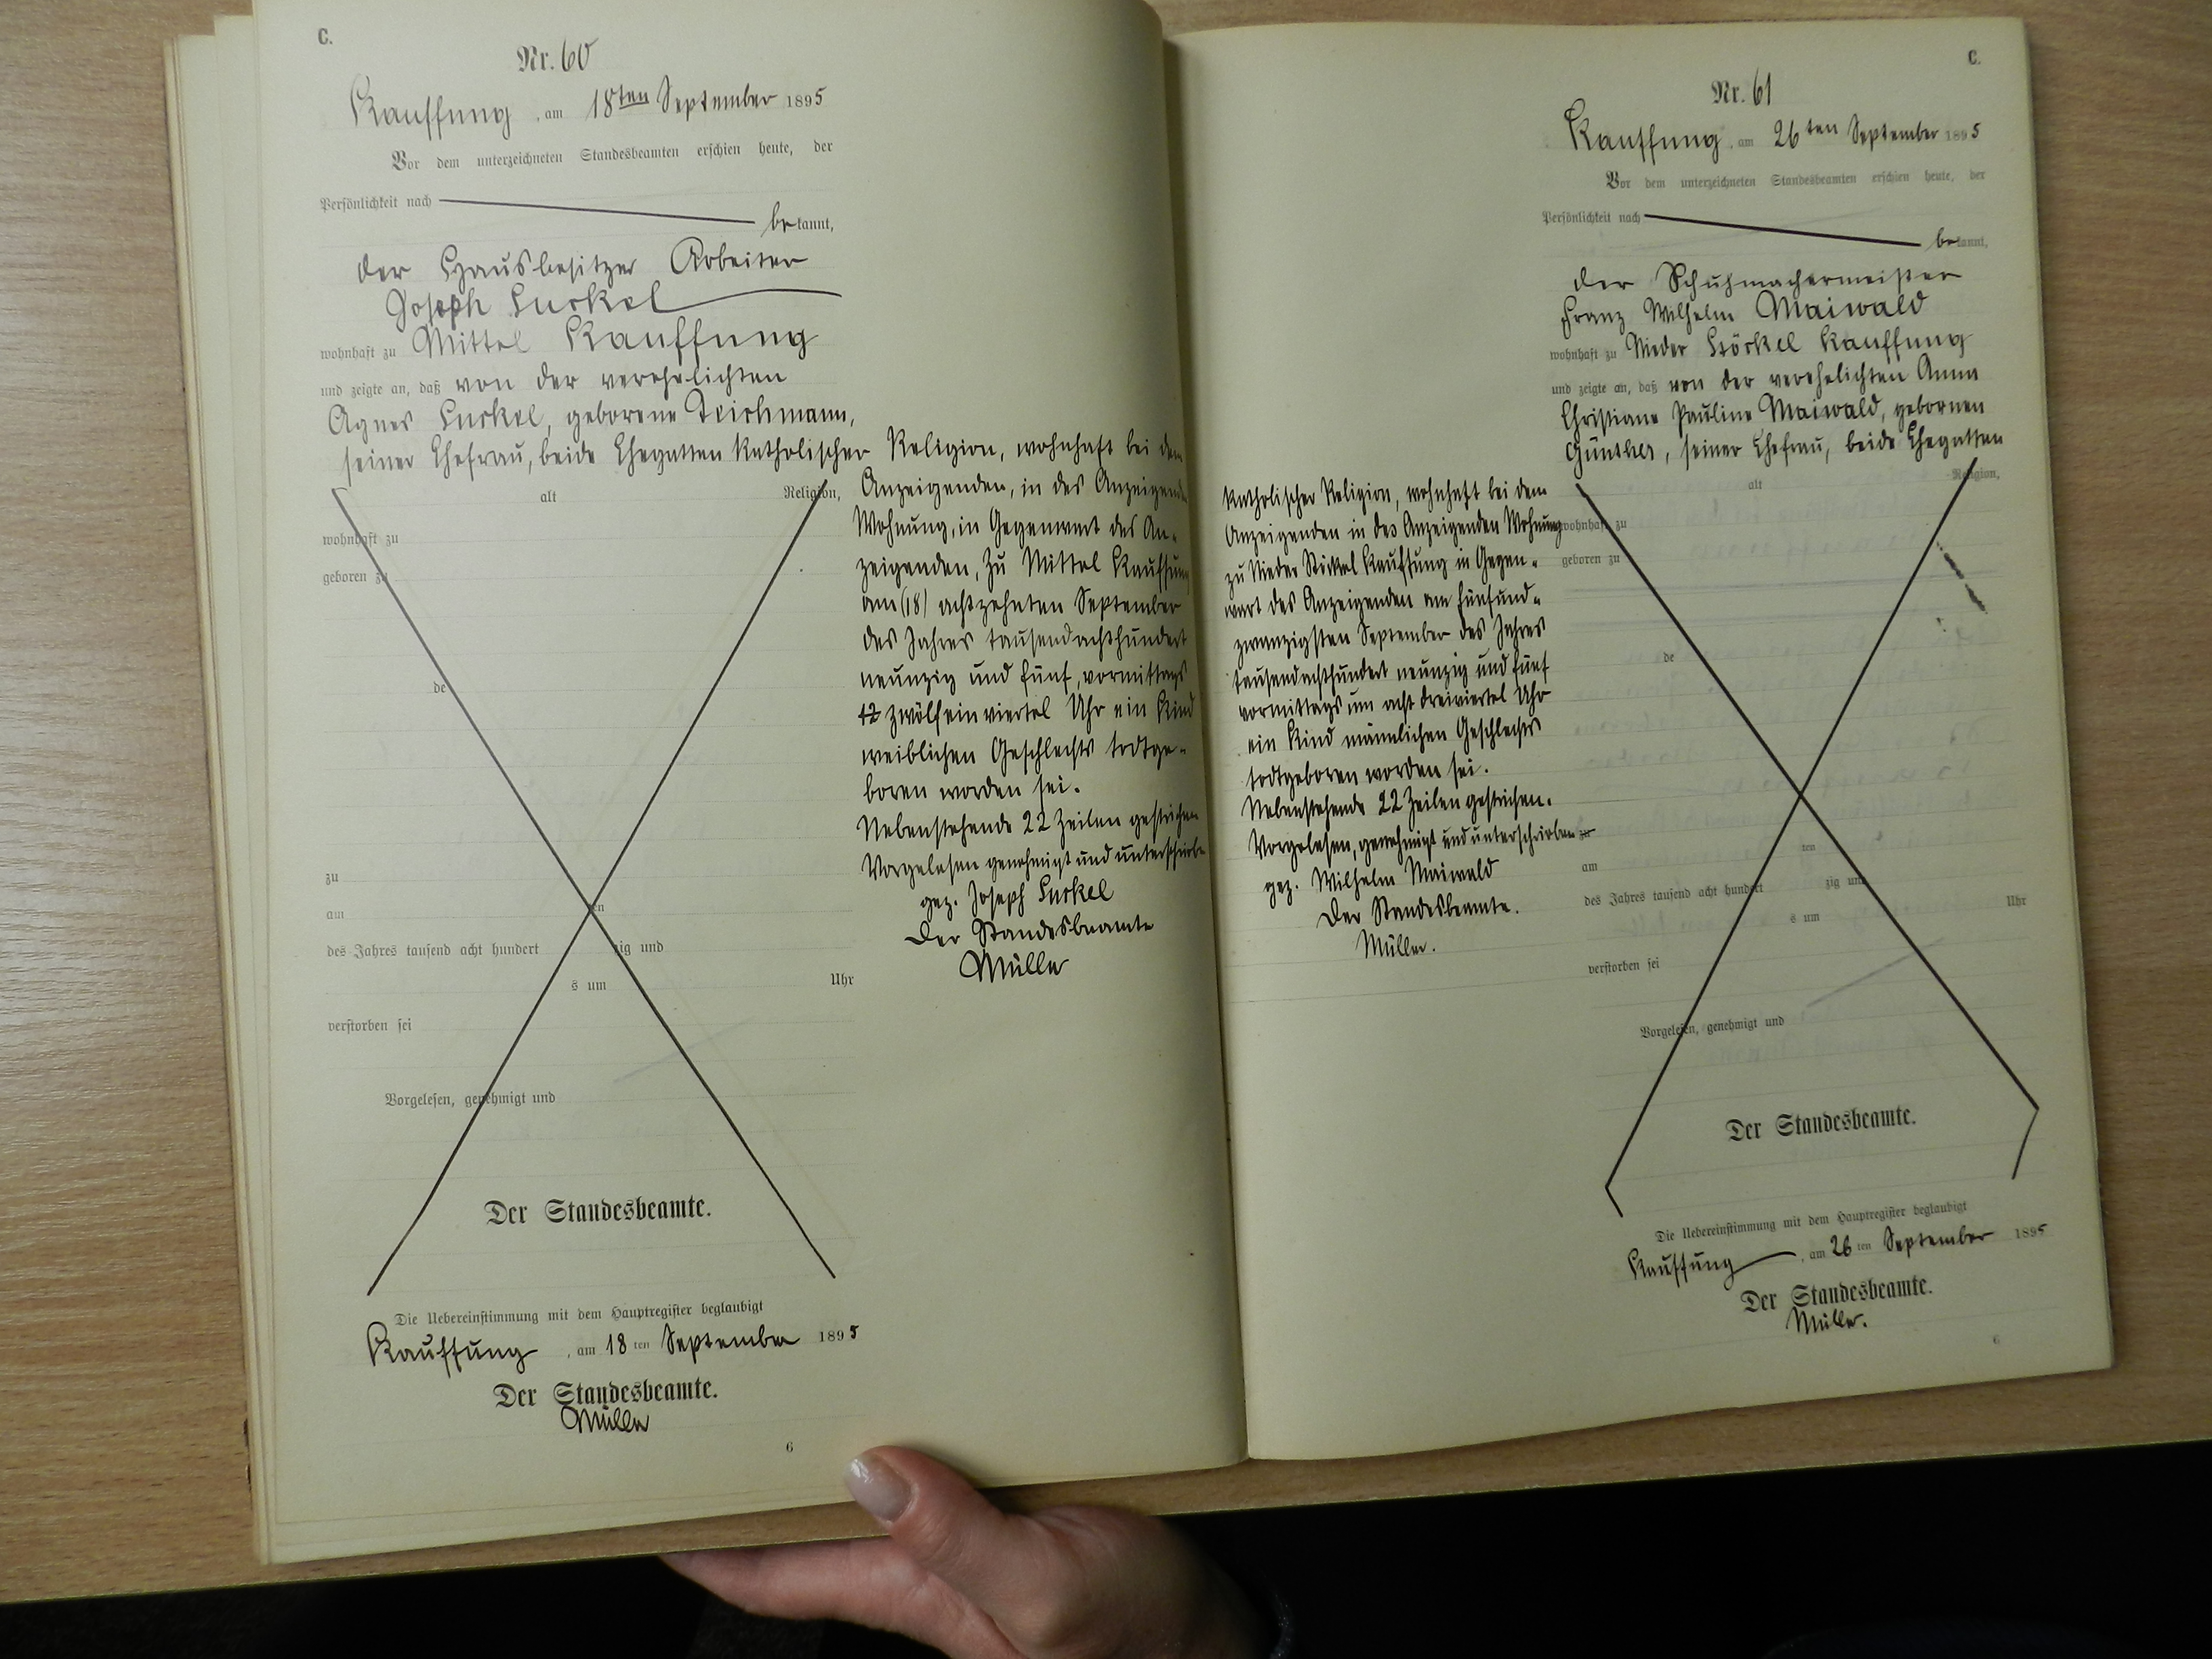 C.
Nr. 60
Kauffung, am 18ten September 1895
Vor dem unterzeichneten Standesbeamten erschien heute, der
Persönlichkeit nach
bekannt,
der Hausbesitzer Arbeiter
Joseph
wohnhaft zu Mittel Kauffung
und zeigte an, daß von der verehelichten
Agnes geborene Teichmann,
seiner Ehefrau, beide Ehegatten katholischer Religion, wohnhaft bei dem
alt Religion,
Anzeigenden, in des Anzeigenden
wohnhaft zu
Wohnung, in Gegenwart des An-
geboren zu
zeigenden, zu Mittel Kauffung
am (18) achtzehnten September
des Jahres tausendachthundert
neunzig und fünf, vormittags
de
12 zwölf ein viertel Uhr ein Kind
weiblichen Geschlechts todtge-
boren worden sei.
Nebenstehende 22 Zeilen gestrichen
Vorgelesen genehmigt und unterschrieben
gez. Joseph
Der Standesbeamte
Müller
zu
am ten
des Jahres tausend acht hundert zig und
s um Uhr
verstorben sei
Vorgelesen, genehmigt und
Der Standesbeamte.
Die Uebereinstimmung mit dem Hauptregister beglaubigt
Kauffung, am 18 ten September 1895
Der Standesbeamte.
Müller
6
C.
Nr. 61
Kauffung, am 26ten September 1895
Vor dem unterzeichneten Standesbeamten erschien heute, der
Persönlichkeit nach
bekannt,
der Schuhmachermeister
Franz Wilhelm Maiwald
wohnhaft zu Nieder Kauffung
und zeigte an, daß von der verehelichten Anna
Christiane Pauline Maiwald, gebornen
Günther, seiner Ehefrau, beide Ehegatten
alt Religion,
katholischer Religion, wohnhaft bei dem
Anzeigenden in des Anzeigenden Wohnung
wohnhaft zu
zu Nieder Kauffung in Gegen-
geboren zu
wart des Anzeigenden am fünfund-
zwanzigsten September des Jahres
tausendachthundert neunzig und fünf
de
vormittags um acht dreiviertel Uhr
ein Kind männlichen Geschlechts
todtgeboren worden sei.
Nebenstehende 22 Zeilen gestrichen.
Vorgelesen, genehmigt und unterschrieben
gez. Wilhelm Maiwald
Der Standesbeamte.
Müller.
am ten
des Jahres tausend acht hundert zig und
s um Uhr
verstorben sei
Vorgelesen, genehmigt und
Der Standesbeamte.
Die Uebereinstimmung mit dem Hauptregister beglaubigt
Kauffung, am 26 ten September 1895
Der Standesbeamte.
Müller.
6